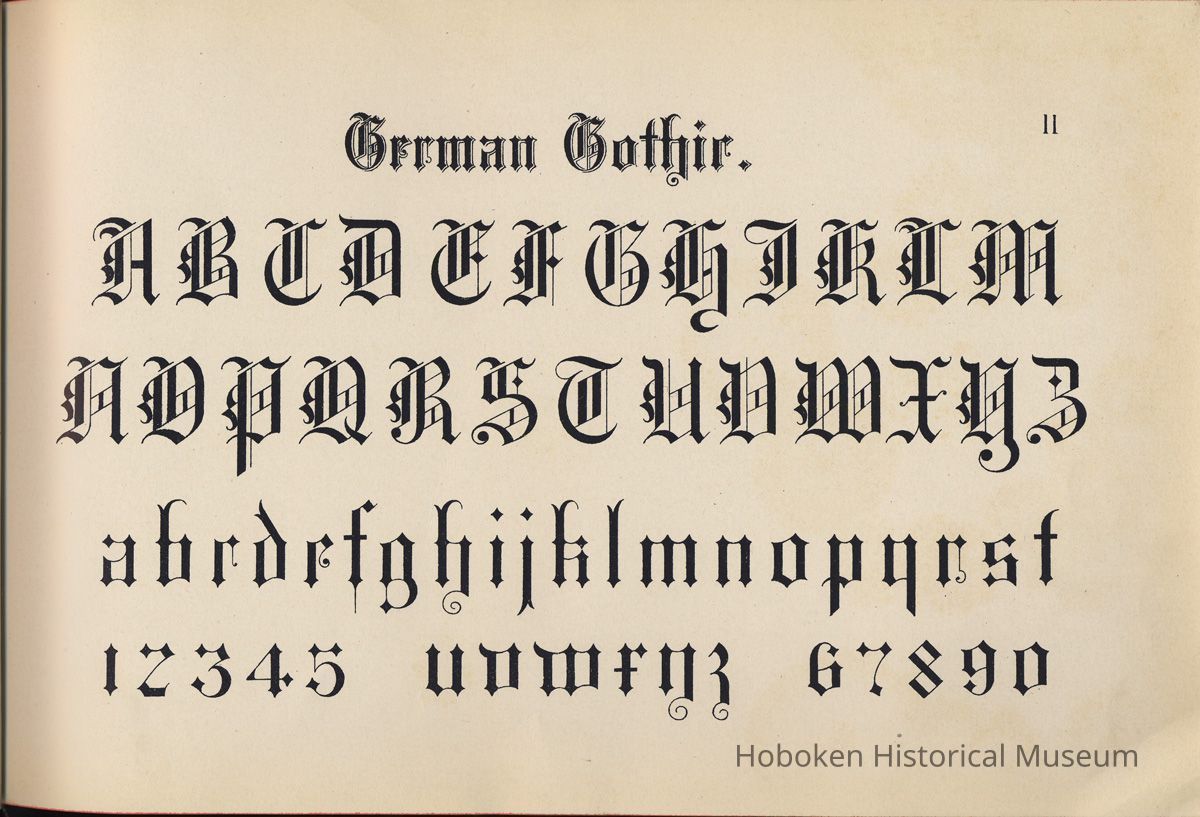 German Gothic.
11
A B C D E F G H I K L M
N O P Q R S T U V W X Y Z
a b c d e f g h i j k l m n o p q r s t
1 2 3 4 5 u v w x y z 6 7 8 9 0
Hoboken Historical Museum